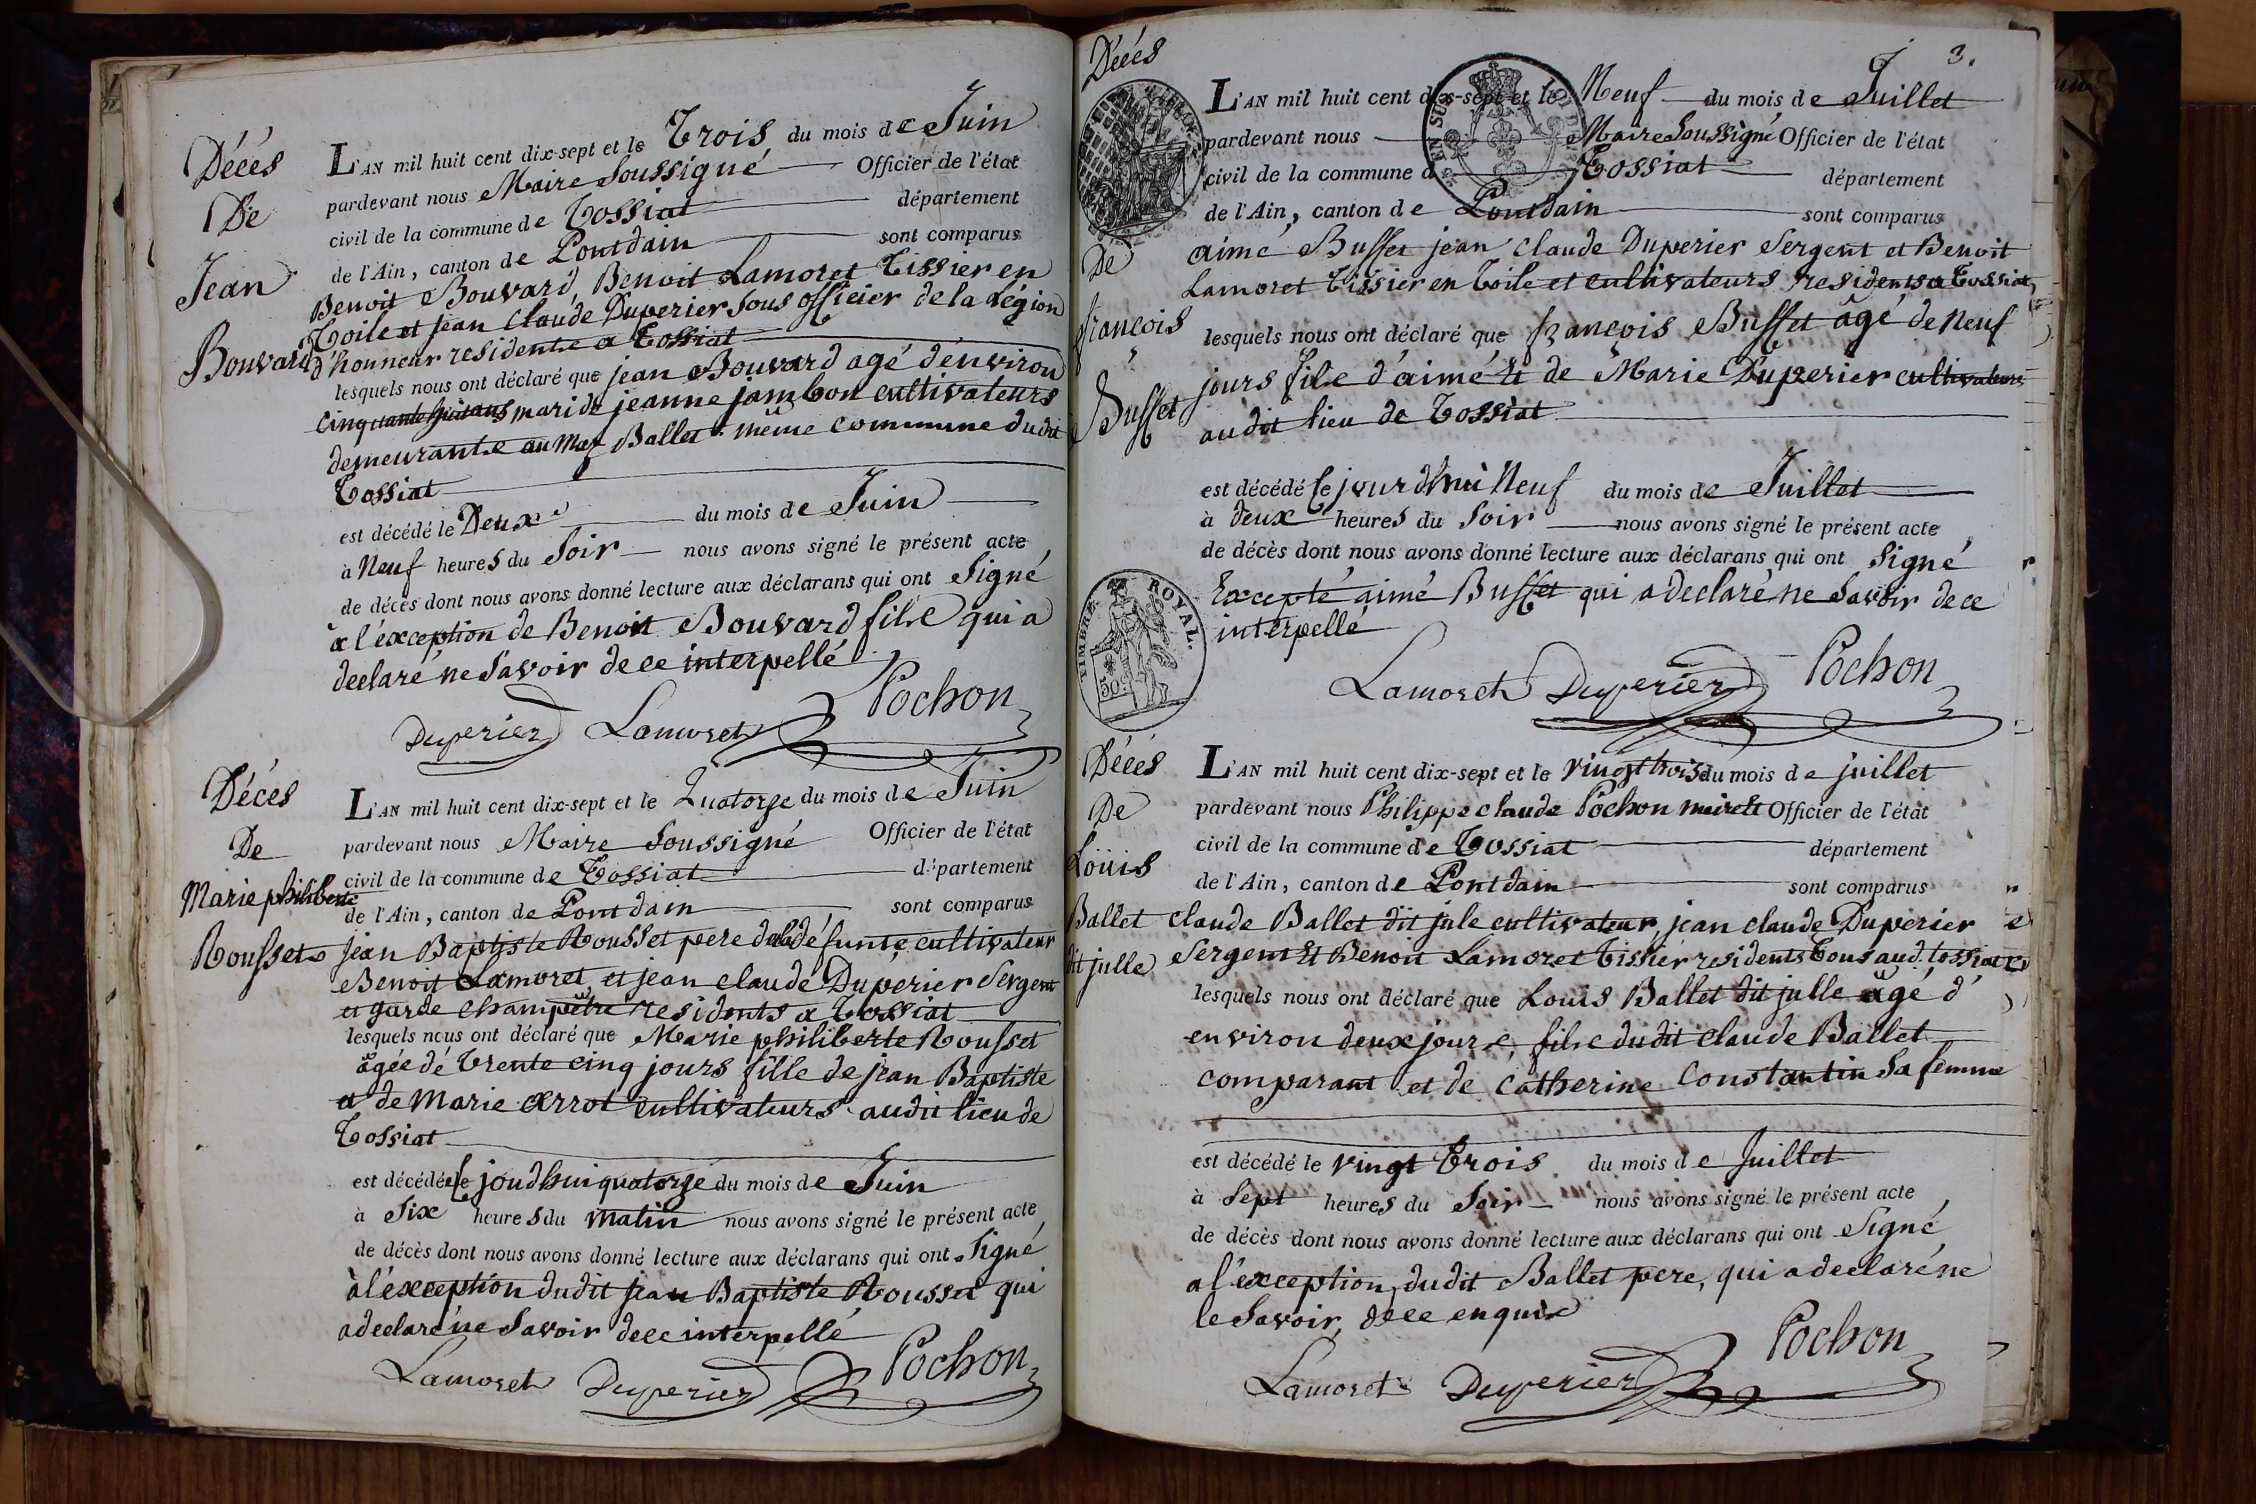 Décés
De
Jean
Bouvard
L'AN mil huit cent dix-sept et le Trois du mois de Juin
pardevant nous Maire Soussigné Officier de l'état
civil de la commune de Tossiat département
de l'Ain, canton de Pontdain sont comparus
Benoit Bouvard, Benoit Lamoret Tissier en
Toile et jean Claude Duperier Sous officier de la Légion
d'honneur residente a Tossiat
lesquels nous ont déclaré que jean Bouvard agé d'environ
cinquante huit ans mari de jeanne jambon cultivateurs
demeurante au Mas Ballet même commune du dit
Tossiat
est décédé le Deux du mois de Juin
à Neuf heures du Soir nous avons signé le présent acte
de décès dont nous avons donné lecture aux déclarans qui ont Signé
a l'exception de Benoit Bouvard fils qui a
declaré ne Savoir de ce interpellé
Duperier Lamoret Pochon
Décés
De
Marie philiberte
Rousset
L'AN mil huit cent dix-sept et le Quatorze du mois de Juin
pardevant nous Maire Soussigné Officier de l'état
civil de la commune de Tossiat département
de l'Ain, canton de Pont dain sont comparus
jean Baptiste Rousset pere de la défunte cultivateur
Benoit Lamoret, et jean claude Duperier Sergent
et garde champêtre residents a Tossiat
lesquels nous ont déclaré que Marie philiberte Rousset
âgée dé Trente cinq jours fille de jean Baptiste
et de Marie Arrot cultivateurs audit lieu de
Tossiat
est décédée le joudhui quatorze du mois de Juin
à Six heures du matin nous avons signé le présent acte
de décès dont nous avons donné lecture aux déclarans qui ont Signé
à l'exception dudit jean Baptiste Rousset qui
a declaré ne Savoir de ce interpellé
Lamoret Duperier Pochon
3.
Décés
De
françois
Buffet
L'AN mil huit cent dix-sept et le Neuf du mois de Juillet
pardevant nous Maire Soussigné Officier de l'état
civil de la commune d Tossiat département
de l'Ain, canton de Pontdain sont comparus
aimé Buffet jean Claude Duperier Sergent et Benoit
Lamoret Tissier en Toile et cultivateurs residents a Tossiat
lesquels nous ont déclaré que françois Buffet âgé de Neuf
jours fils d'aimé Et de Marie Duperier cultivateurs
audit lieu de Tossiat
est décédé le jourdhui Neuf du mois de Juillet
à deux heures du Soir nous avons signé le présent acte
de décès dont nous avons donné lecture aux déclarans qui ont Signé
Excepté aimé Buffet qui a declaré ne Savoir de ce
interpellé
TIMBRE ROYAL.
50c
Lamoret Duperier Pochon
Décés
De
Loüis
Ballet
dit julle
L'AN mil huit cent dix-sept et le vingt trois du mois de juillet
pardevant nous Philippe claude Pochon maire Et Officier de l'état
civil de la commune de Tossiat département
de l'Ain, canton de Pontdain sont comparus
claude Ballet dit jule cultivateur, jean claude Duperier
Sergent Et Benoit Lamoret Tissier residents Tous aud. Tossiat
lesquels nous ont déclaré que Louis Ballet dit julle âgé d'
environ deux jours, fils dudit claude Ballet
comparant et de catherine Constantin Sa femme
est décédé le vingt Trois du mois de Juillet
à Sept heures du Soir nous avons signé le présent acte
de décès dont nous avons donné lecture aux déclarans qui ont Signé
a l'exception, dudit Ballet pere, qui a declaré ne
le Savoir, de ce enquis
Lamoret Duperier Pochon